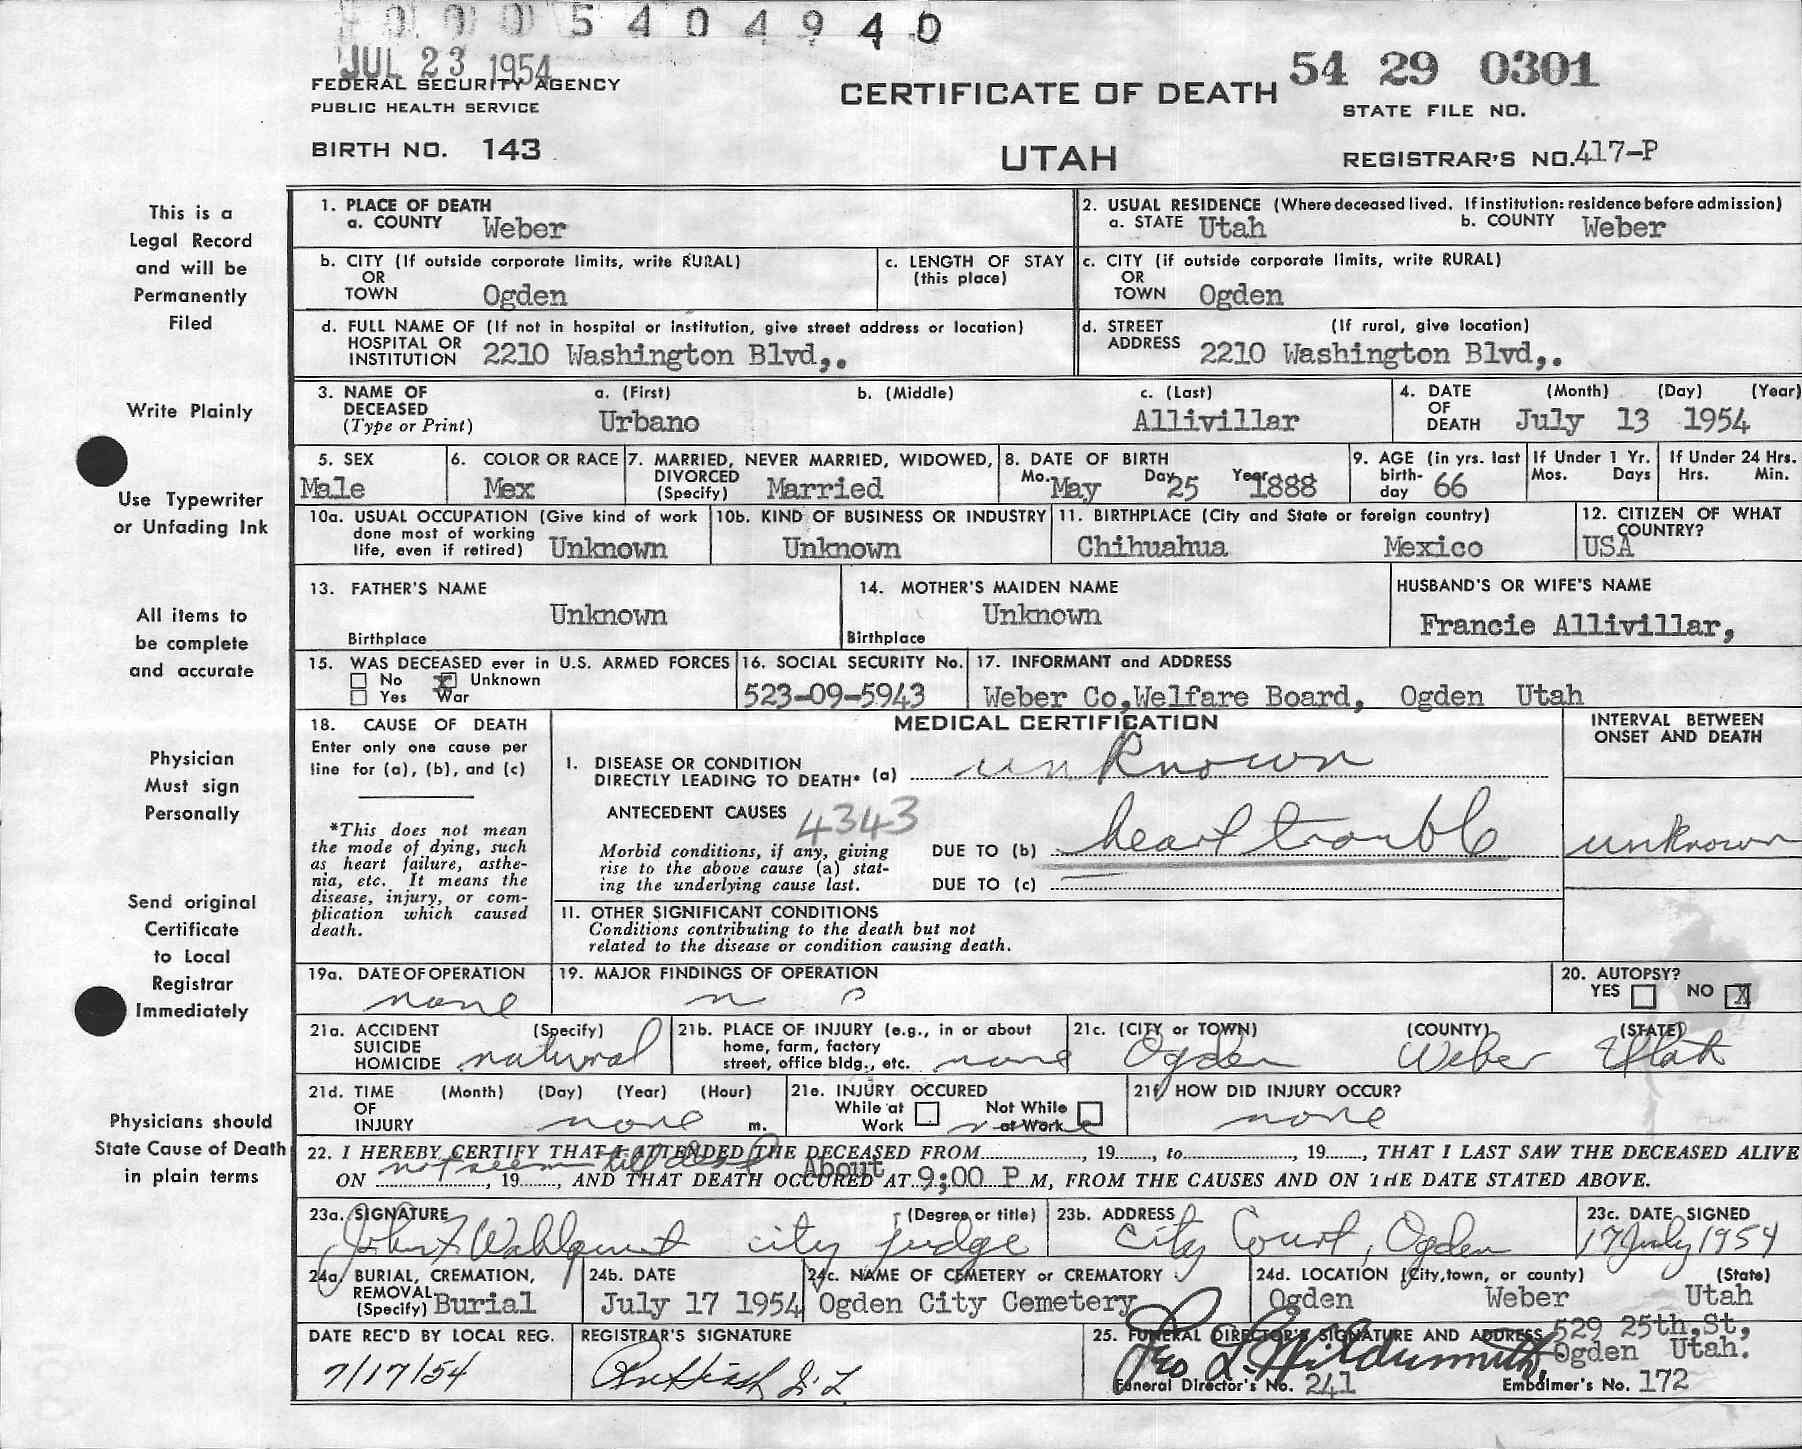 0 0 0 5 4 0 4 9 4 0
JUL 23 1954
FEDERAL SECURITY AGENCY
PUBLIC HEALTH SERVICE
BIRTH NO. 143
CERTIFICATE OF DEATH
UTAH
54 29 0301
STATE FILE NO.
REGISTRAR'S NO. 417-P
This is a
Legal Record
and will be
Permanently
Filed
Write Plainly
Use Typewriter
or Unfading Ink
All items to
be complete
and accurate
Physician
Must sign
Personally
Send original
Certificate
to Local
Registrar
Immediately
Physicians should
State Cause of Death
in plain terms
1. PLACE OF DEATH
a. COUNTY Weber
2. USUAL RESIDENCE (Where deceased lived. If institution: residence before admission)
a. STATE Utah b. COUNTY Weber
b. CITY (If outside corporate limits, write RURAL)
OR
TOWN Ogden
c. LENGTH OF STAY
(this place)
c. CITY (if outside corporate limits, write RURAL)
OR
TOWN Ogden
d. FULL NAME OF (If not in hospital or institution, give street address or location)
HOSPITAL OR
INSTITUTION 2210 Washington Blvd,.
d. STREET (If rural, give location)
ADDRESS 2210 Washington Blvd,.
3. NAME OF DECEASED (Type or Print)
a. (First) b. (Middle) c. (Last)
Urbano Allivillar
4. DATE OF DEATH (Month) (Day) (Year)
July 13 1954
5. SEX
Male
6. COLOR OR RACE
Mex
7. MARRIED, NEVER MARRIED, WIDOWED,
DIVORCED
(Specify) Married
8. DATE OF BIRTH
Mo. May Day 25 Year 1888
9. AGE (in yrs. last
birth-
day 66
If Under 1 Yr.
Mos. Days
If Under 24 Hrs.
Hrs. Min.
10a. USUAL OCCUPATION (Give kind of work
done most of working
life, even if retired) Unknown
10b. KIND OF BUSINESS OR INDUSTRY
Unknown
11. BIRTHPLACE (City and State or foreign country)
Chihuahua Mexico
12. CITIZEN OF WHAT
COUNTRY?
USA
13. FATHER'S NAME
Unknown
Birthplace
14. MOTHER'S MAIDEN NAME
Unknown
Birthplace
HUSBAND'S OR WIFE'S NAME
Francie Allivillar,
15. WAS DECEASED ever in U.S. ARMED FORCES
No x Unknown
Yes War
16. SOCIAL SECURITY No.
523-09-5943
17. INFORMANT and ADDRESS
Weber Co,Welfare Board, Ogden Utah
18. CAUSE OF DEATH
Enter only one cause per
line for (a), (b), and (c)
*This does not mean
the mode of dying, such
as heart failure, asthe-
nia, etc. It means the
disease, injury, or com-
plication which caused
death.
MEDICAL CERTIFICATION
INTERVAL BETWEEN
ONSET AND DEATH
I. DISEASE OR CONDITION
DIRECTLY LEADING TO DEATH* (a) unknown
ANTECEDENT CAUSES 4343
Morbid conditions, if any, giving
rise to the above cause (a) stat-
ing the underlying cause last.
DUE TO (b) heart trouble unknown
DUE TO (c)
II. OTHER SIGNIFICANT CONDITIONS
Conditions contributing to the death but not
related to the disease or condition causing death.
19a. DATE OF OPERATION
none
19. MAJOR FINDINGS OF OPERATION
20. AUTOPSY?
YES NO X
21a. ACCIDENT (Specify)
SUICIDE
HOMICIDE natural
21b. PLACE OF INJURY (e.g., in or about
home, farm, factory
street, office bldg., etc. none
21c. (CITY or TOWN) (COUNTY) (STATE)
Ogden Weber Utah
21d. TIME (Month) (Day) (Year) (Hour)
OF
INJURY none m.
21e. INJURY OCCURED
While at Work Not While at Work none
21f. HOW DID INJURY OCCUR?
none
22. I HEREBY CERTIFY THAT I ATTENDED THE DECEASED FROM, 19, to, 19, THAT I LAST SAW THE DECEASED ALIVE
not seen till dead About
ON, 19, AND THAT DEATH OCCURED AT 9;00 P M, FROM THE CAUSES AND ON THE DATE STATED ABOVE.
23a. SIGNATURE (Degree or title)
John F Wahlquist city judge
23b. ADDRESS
City Court, Ogden
23c. DATE SIGNED
17 July 1954
24a. BURIAL, CREMATION,
REMOVAL
(Specify) Burial
24b. DATE
July 17 1954
24c. NAME OF CEMETERY or CREMATORY
Ogden City Cemetery
24d. LOCATION (City, town, or county) (State)
Ogden Weber Utah
DATE REC'D BY LOCAL REG.
7/17/54
REGISTRAR'S SIGNATURE
25. FUNERAL DIRECTOR'S SIGNATURE AND ADDRESS 529 25th,St,
Ogden Utah.
Funeral Director's No. 241 Embalmer's No. 172